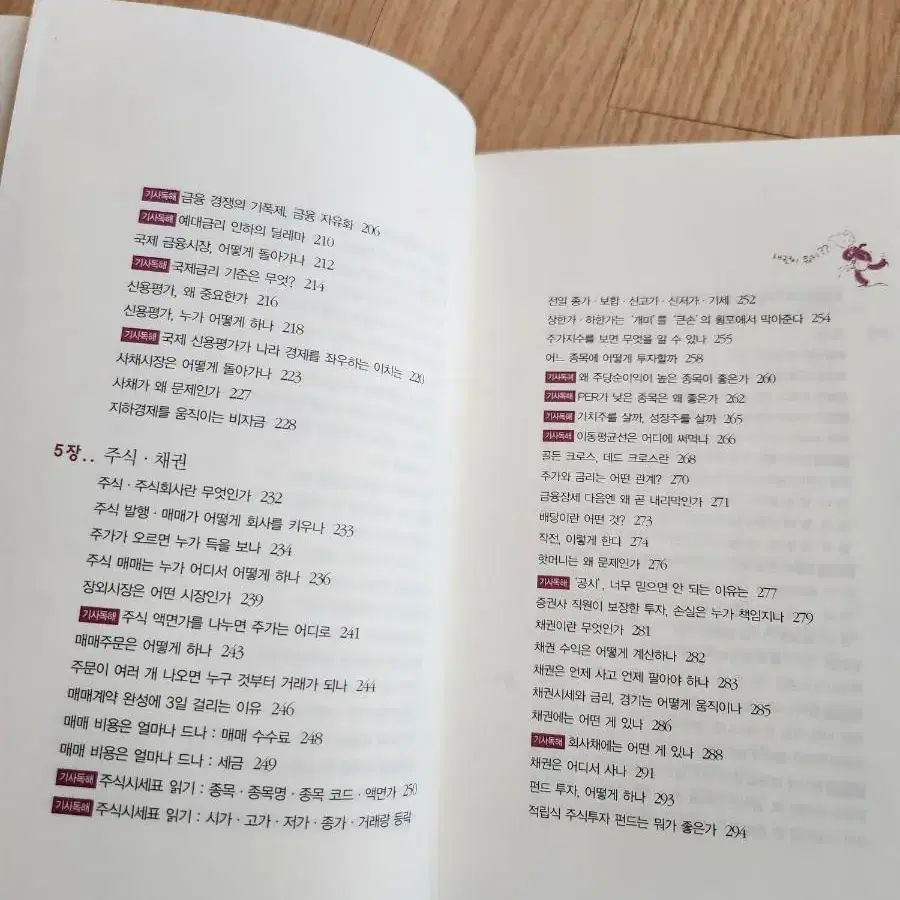 기사독해 금융 경쟁의 기폭제, 금융 자유화 206
기사독해 예대금리 인하의 딜레마 210
국제 금융시장, 어떻게 돌아가나 212
기사독해 국제금리 기준은 무엇? 214
신용평가, 왜 중요한가 216
신용평가, 누가 어떻게 하나 218
기사독해 국제 신용평가가 나라 경제를 좌우하는 이치는 220
사채시장은 어떻게 돌아가나 223
사채가 왜 문제인가 227
지하경제를 움직이는 비자금 228
5장.. 주식·채권
주식·주식회사란 무엇인가 232
주식 발행·매매가 어떻게 회사를 키우나 233
주가가 오르면 누가 득을 보나 234
주식 매매는 누가 어디서 어떻게 하나 236
장외시장은 어떤 시장인가 239
기사독해 주식 액면가를 나누면 주가는 어디로 241
매매주문은 어떻게 하나 243
주문이 여러 개 나오면 누구 것부터 거래가 되나 244
매매계약 완성에 3일 걸리는 이유 246
매매 비용은 얼마나 드나 : 매매 수수료 248
매매 비용은 얼마나 드나 : 세금 249
기사독해 주식시세표 읽기 : 종목·종목명·종목 코드·액면가 250
기사독해 주식시세표 읽기 : 시가·고가·저가·종가·거래량 등락
전일 종가·보합·신고가·신저가·기세 252
상한가·하한가는 '개미'를 '큰손'의 횡포에서 막아준다 254
주가지수를 보면 무엇을 알 수 있나 255
어느 종목에 어떻게 투자할까 258
기사독해 왜 주당순이익이 높은 종목이 좋은가 260
기사독해 PER가 낮은 종목은 왜 좋은가 262
기사독해 가치주를 살까, 성장주를 살까 265
기사독해 이동평균선은 어디에 써먹나 266
골든 크로스, 데드 크로스란 268
주가와 금리는 어떤 관계? 270
금융장세 다음엔 왜 곧 내리막인가 271
배당이란 어떤 것? 273
작전, 이렇게 한다 274
핫머니는 왜 문제인가 276
기사독해 '공시', 너무 믿으면 안 되는 이유는 277
증권사 직원이 보장한 투자, 손실은 누가 책임지나 279
채권이란 무엇인가 281
채권 수익은 어떻게 계산하나 282
채권은 언제 사고 언제 팔아야 하나 283
채권시세와 금리, 경기는 어떻게 움직이나 285
채권에는 어떤 게 있나 286
기사독해 회사채에는 어떤 게 있나 288
채권은 어디서 사나 291
펀드 투자, 어떻게 하나 293
적립식 주식투자 펀드는 뭐가 좋은가 294